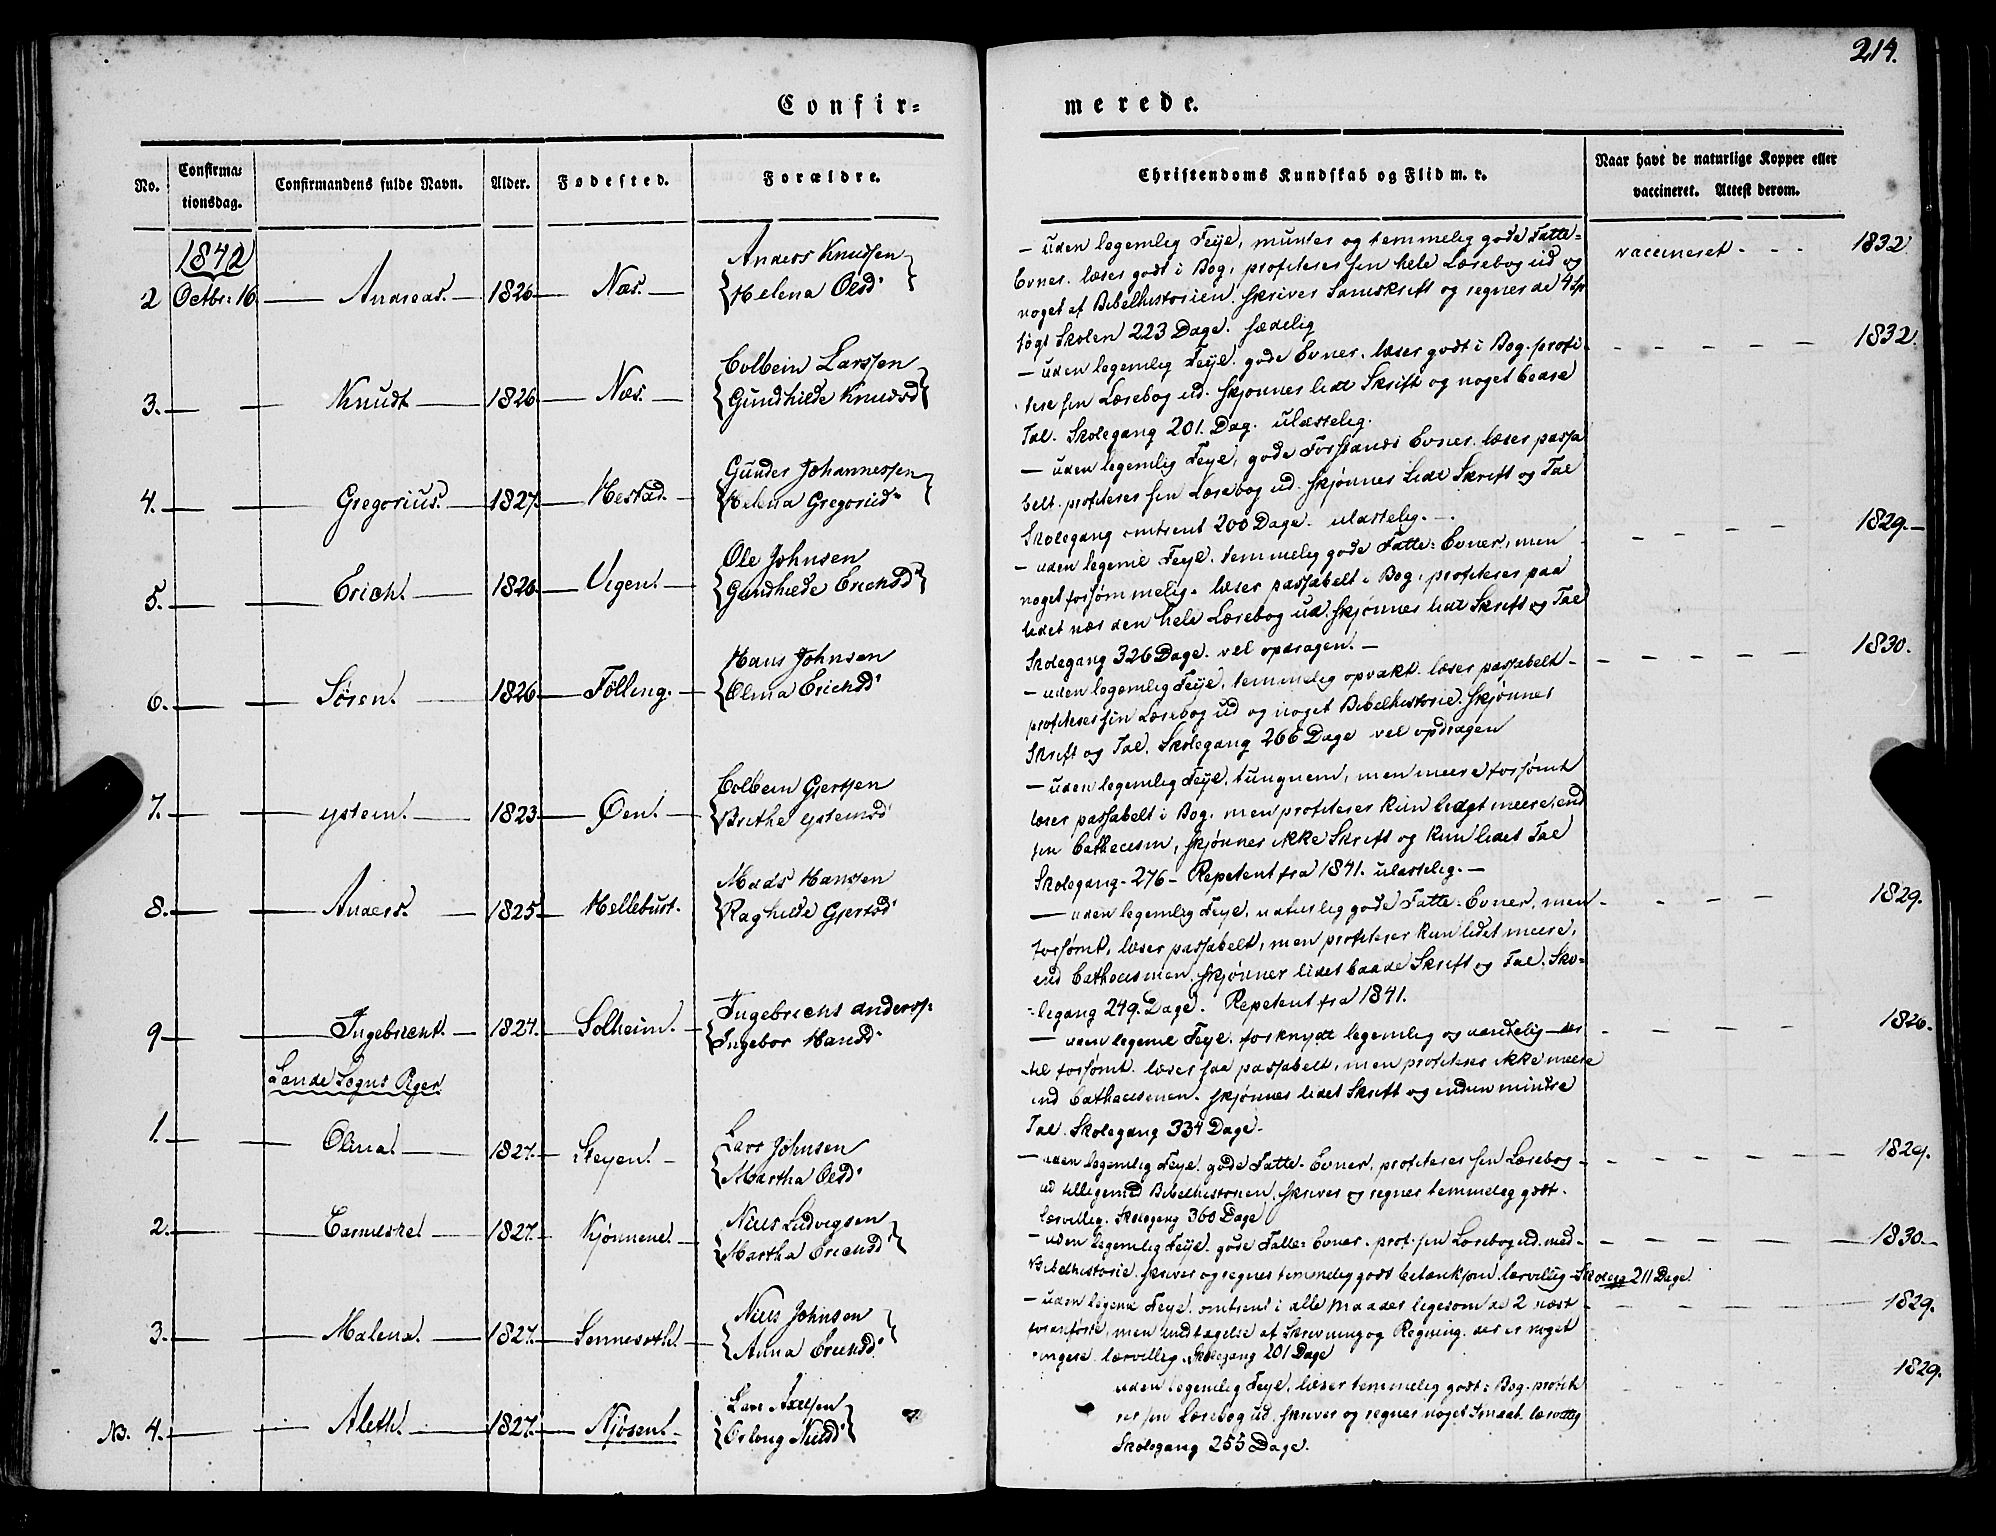 214.
Confir=
merede.
No.
Confirma=
tionsdag.
Confirmandens fulde Navn.
Alder.
Fødested.
Forældre.
Christendoms Kundskab og Flid m. v.
Naar havt de naturlige Kopper eller
vaccineret. Attest derom.
1842
2 Octbr: 16. Andreas. 1826 Næs. Anders Knudsen
Helena Olsd:
— uden legemlig Feyl, munter og temmelig gode Fatte=
Evner. læser godt i Bog, profiterer sin hele Lærebog ud og
noget af Bibelhistorien. skriver Samskrift og regner de 4 Sp
søgt Skolen 223 Dage. sædelig
vaccineret - - - 1832.
3. Knudt 1826 Næs. Colbein Larssen
Gundhilde Knudsd
— uden legemlig Feyl. gode Evner. læser godt i Bog. profi
tere sin Lærebog ud. skjønner lidt Skrift og noget bedre
Tal. Skolegang 201. Dag. ulastelig.
1832.
4. Gregorius. 1827. Hestad. Gunder Johannessen
Helena Gregorid:
— uden legemlig Feyl, gode Forstands Evner. læser passa
belt. profiterer sin Lærebog ud. skjønner lidt Skrift og Tal
Skolegang omtrent 200 Dage. ulastelig. —
1829.
5. Erich. 1826. Vigen. Ole Johnsen
Gundhilde Erichsd
— uden legeml Feyl. temmelig gode Fatte= Evner, men
noget forsømmelig. læser passabelt i Bog, profiterer paa
lidet nær den hele Lærebog ud. skjønner lidt Skrift og Tal
Skolegang 326 Dage. vel opdragen. —
1830.
6. Søren. 1826 Fölling. Hans Johnsen
Olina Erichsd:
— uden legemlig Feyl, temmelig opvakt. læser passabelt
profiterer sin Lærebog ud og noget Bibelhistorie. skjønner
Skrift og Tal. Skolegang 266 Dage vel opdragen
7. ystein. 1823 Øen. Colbein Gjertsen
Brithe ysteinsd
— uden legemlig Feyl. tungnem, men meere forsømt
læser passabelt i Bog, men profiterer kun lidet meere, end
sin Cathecism, skjønner ikke Skrift og kun lidet Tal
Skolegang - 276 - Repetent fra 1841. ulastelig. —
8. Anders. 1825 Hellebust. Mads Hanssen
Raghilde Gjertsd
— uden legemlig Feyl, naturlig gode Fatte= Evner, men
forsømt, læser passabelt, men profiterer kun lidet meere,
end Cathecismen. skjønner lidet baade Skrift og Tal. Sko=
=legang 249. Dage. Repetent fra 1841.
1829.
9 Ingebrecht. 1824. Solheim. Ingebrecht anders:
Ingebor Hansd:
— uden legeml Feyl. forknydt legemlig og aandelig — der
til forsømt. læser saa passabelt, men profiterer ikke meere
end Cathecismen. skjønner lidet Skrift og endnu mindre
Tal. Skolegang 334 Dage.
1826.
Sande Sogns Piger
1. Olina. 1827. Steyen. Lars Johnsen
Martha Olsd:
— uden legemlig Feyl. gode Fatte= Evner, profiterer sin Lærebog
ud tilligemed Bibelhistorien. skriver og regner temmelig godt.
lærvillig. Skolegang 360 Dage
1829.
2. 1827. Kjønnene. Niels Ludvigsen
Martha Erichsd
— uden legemlig Feyl. gode Fatte= Evner. prof. sin Lærebog ud. med
Bibelhistorie. skriver og regner temmelig godt betænksom lærvillig - Skoleg 211 Dage.
1830.
3. Malena. 1827. Sønnesøth. Niels Johnsen
Anna Erichsd
— uden legeml Feyl. omtrent i alle Maader ligesom de 2 næst
foranførte, men undtagelse af Skrivning og Regning. der er noget
ringere. lærvillig. Skolegang 201 Dage
1829.
No. 4. Aleth. 1827. Njøsen. Lars Axelsen
Orloug Nielsd
uden legemlig Feyl, læser temmelig godt i Bog. profite
rer sin Lærebog ud. skriver og regner noget Smaat. lærvillig
Skolegang 255 Dage.
1829.